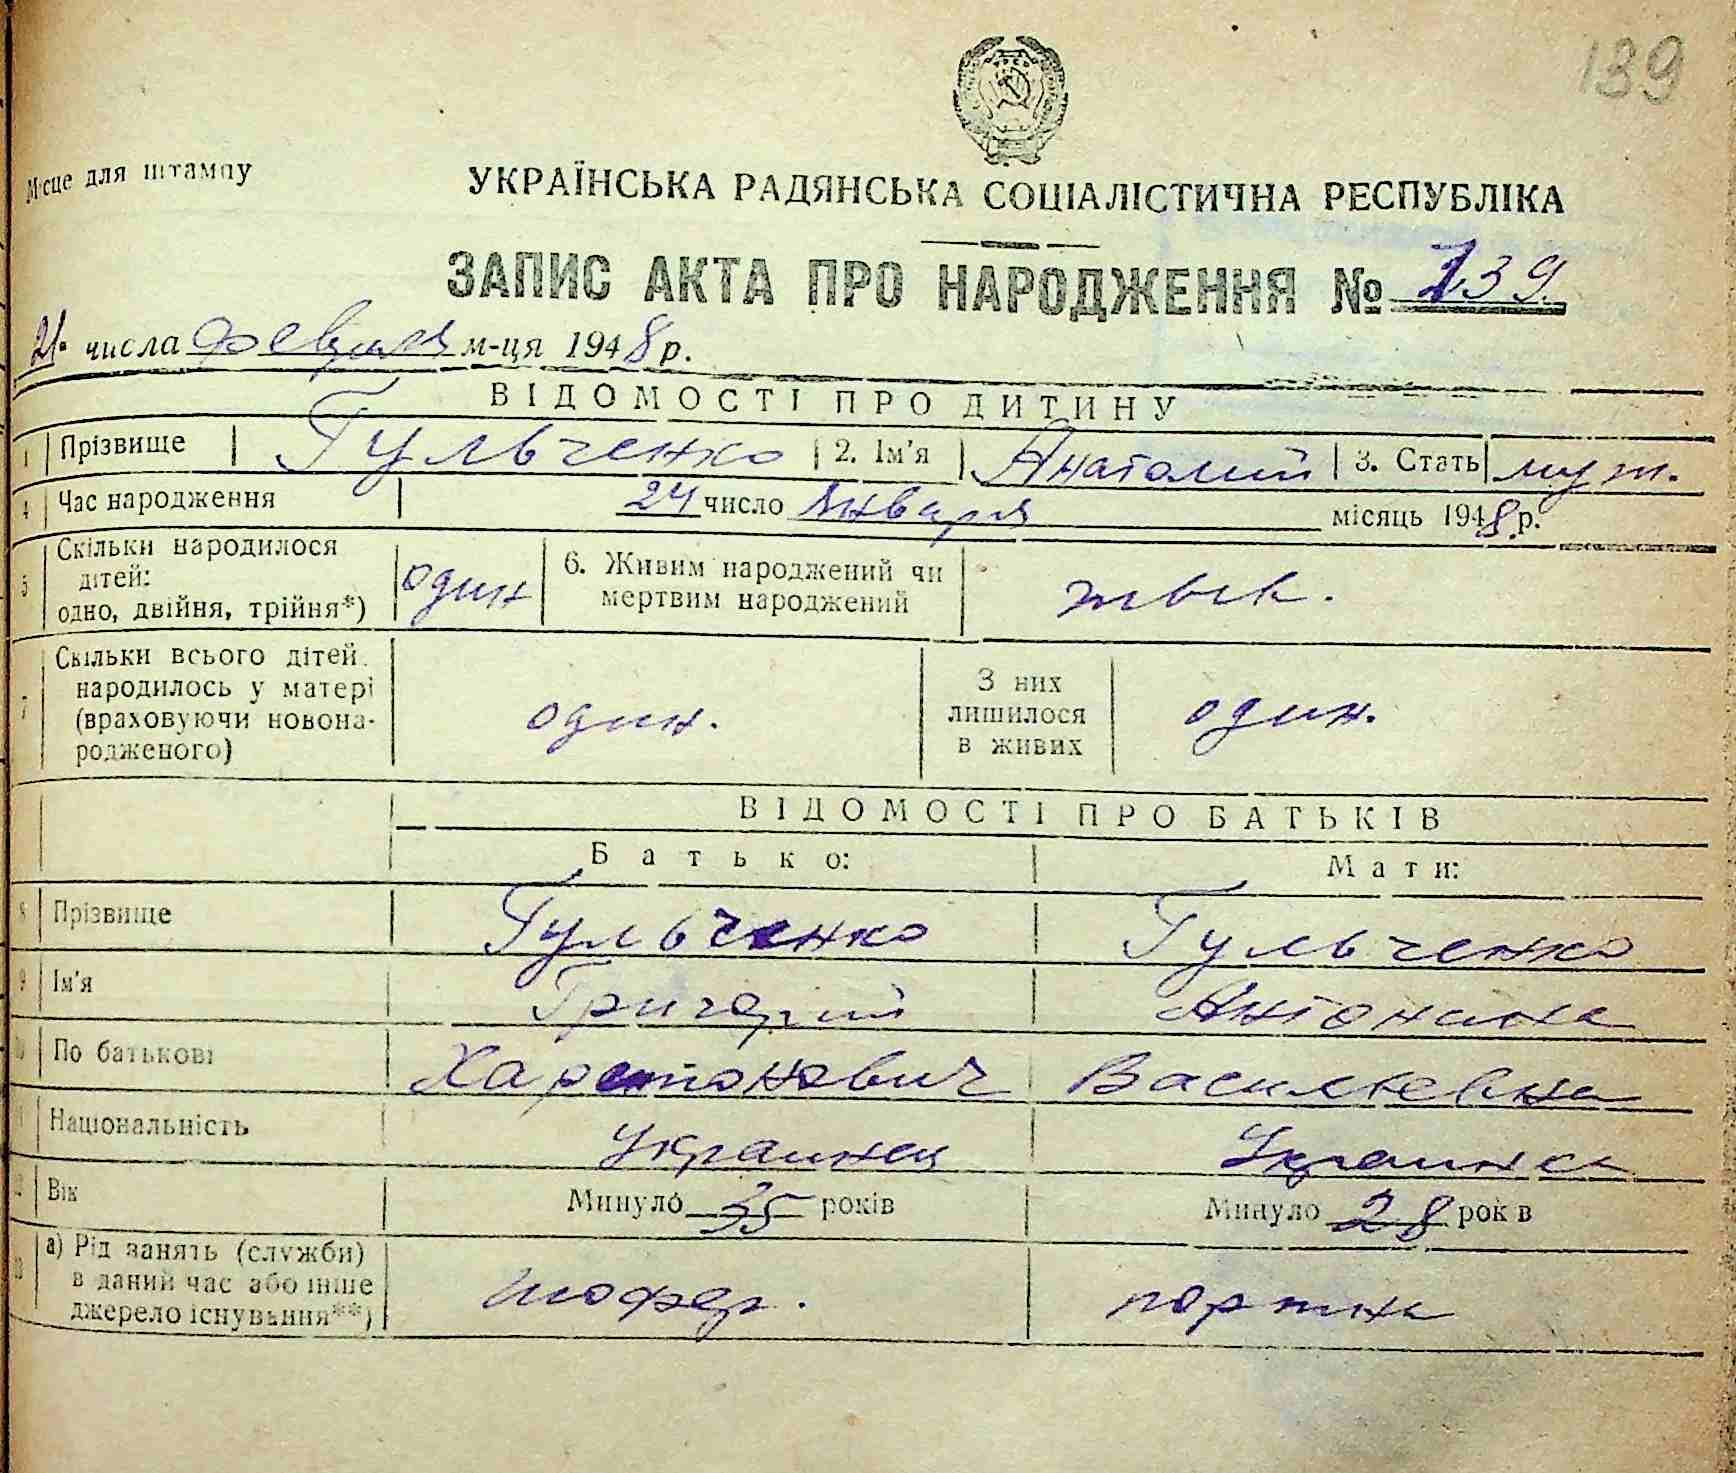 139
Місце для штампу
УКРАЇНСЬКА РАДЯНСЬКА СОЦІАЛІСТИЧНА РЕСПУБЛІКА
ЗАПИС АКТА ПРО НАРОДЖЕННЯ № 139.
21 числа февраля м-ця 1948 р.
ВІДОМОСТІ ПРО ДИТИНУ
1 Прізвище Гульченко 2. Ім'я Анатолий 3. Стать муж.
4 Час народження 24 число января місяць 1948 р.
5 Скільки народилося дітей: одно, двійня, трійня*) один 6. Живим народжений чи мертвим народжений
7 Скільки всього дітей народилось у матері (враховуючи новонародженого) один. З них лишилося в живих один.
ВІДОМОСТІ ПРО БАТЬКІВ
Батько: Мати:
8 Прізвище Гульченко Гульченко
9 Ім'я Григорий Антонина
10 По батькові Харитонович Васильевна
Національність Украинец Украинка
Вік Минуло 35 років Минуло 28 рок в
а) Рід занять (служби) в даний час або інше джерело існування**) шофер.